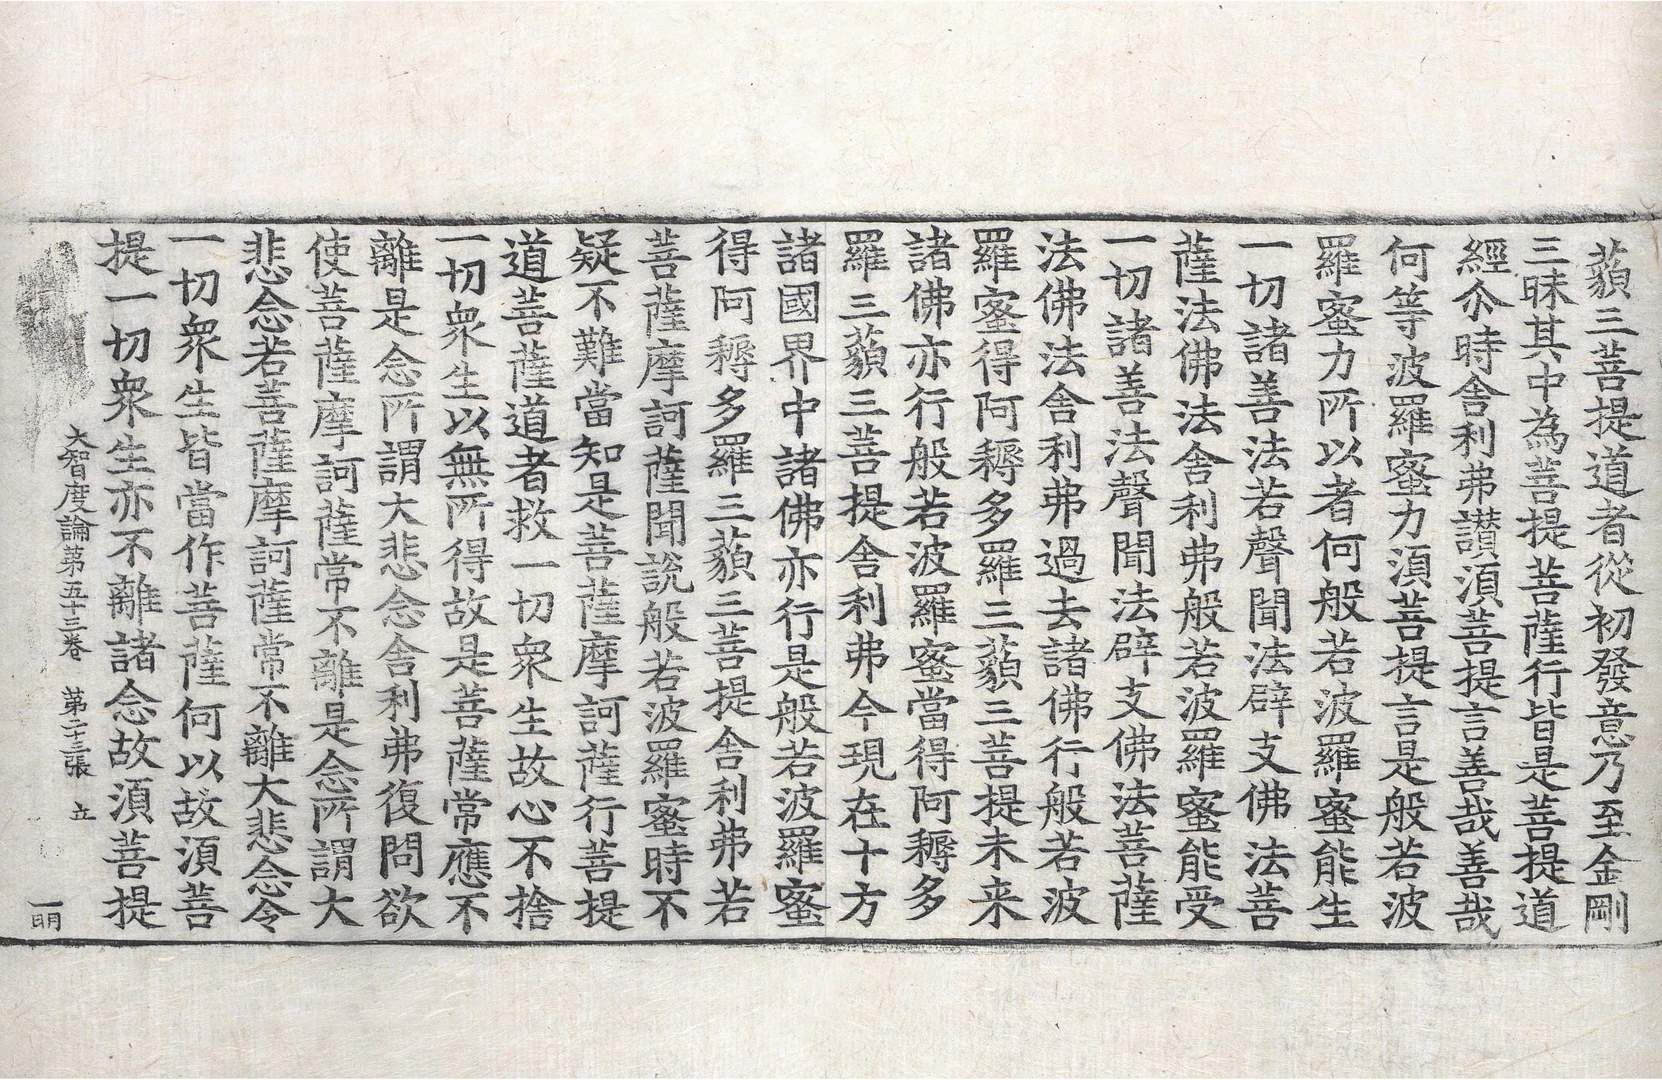 藐三菩提道者從初發意乃至金剛
三昧其中為菩提菩薩行皆是菩提道
經尒時舍利弗讃湏菩提言善哉善哉
何等波羅蜜力湏菩提言是般若波
羅蜜力所以者何般若波羅蜜能生
一切諸善法若聲聞法辟支佛法菩
薩法佛法舍利弗般若波羅蜜能受
一切諸善法聲聞法辟支佛法菩薩
法佛法舍利弗過去諸佛行般若波
羅蜜得阿耨多羅三藐三菩提未来
諸佛亦行般若波羅蜜當得阿耨多
羅三藐三菩提舍利弗今現在十方
諸國界中諸佛亦行是般若波羅蜜
得阿耨多羅三藐三菩提舍利弗若
菩薩摩訶薩聞說般若波羅蜜時不
疑不難當知是菩薩摩訶薩行菩提
道菩薩道者救一切衆生故心不捨
一切衆生以無所得故是菩薩常應不
離是念所謂大悲念舍利弗復問欲
使菩薩摩訶薩常不離是念所謂大
悲念若菩薩摩訶薩常不離大悲念令
一切衆生皆當作菩薩何以故湏菩
提一切衆生亦不離諸念故湏菩提
大智度論第五十三卷 第二十三張 立
一明